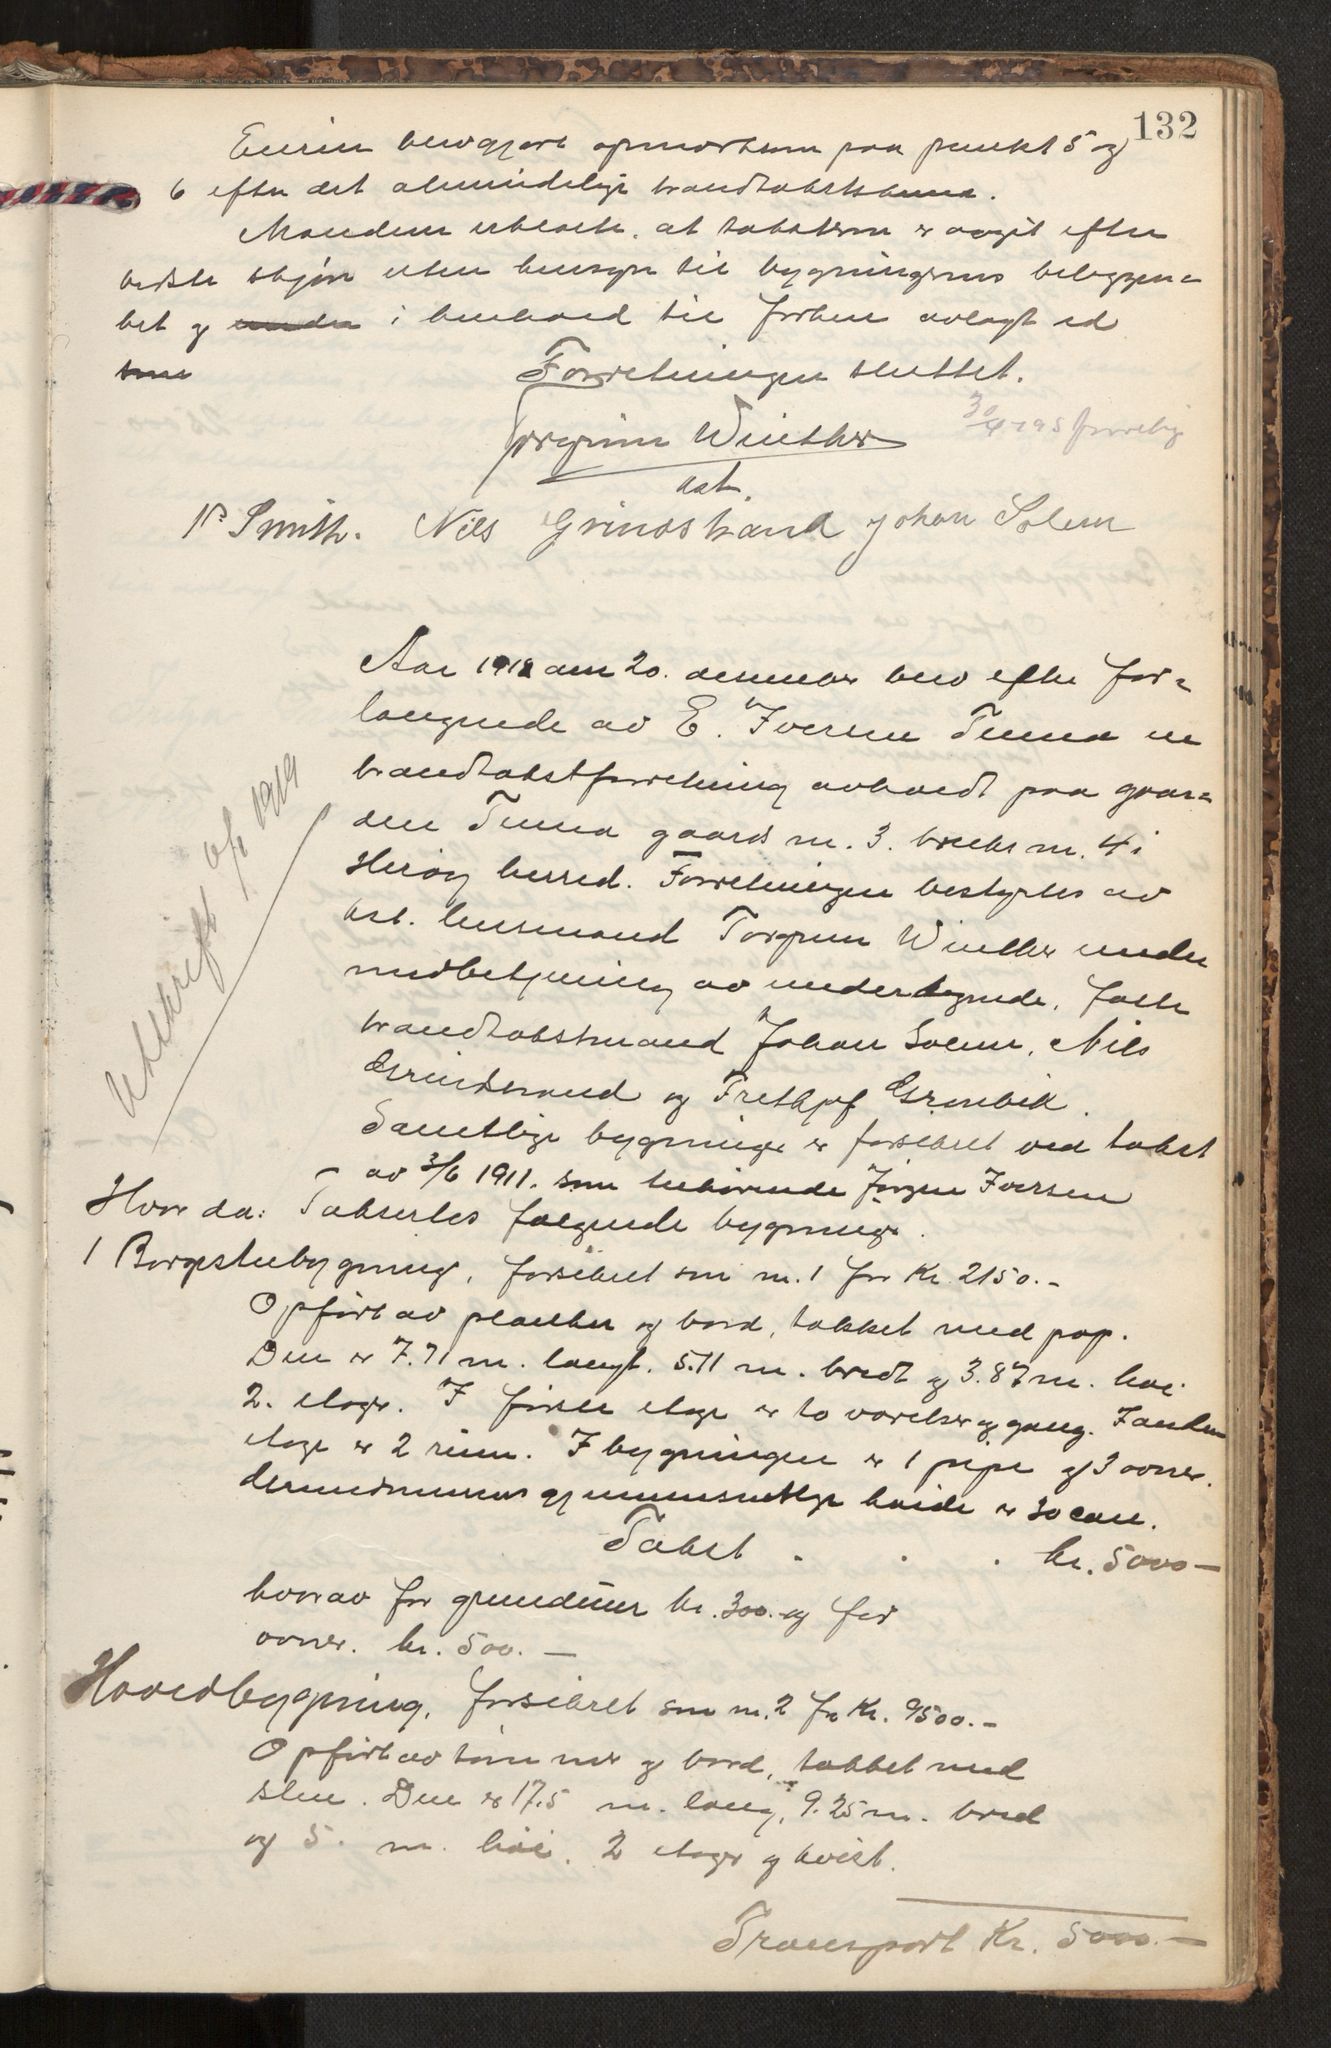 132
Eieren blev gjort opmerksom paa punkt 5 og
6 efter det almindelige brandtakstskema.
Mændene erklærte, at taksten er avgit efter
bedste skjøn uten hensyn til bygningernes beliggen=
het og i henhold til forhen avlagt ed
Forretningen sluttet.
Torginn Winther
ast.
P Smith. Nils Grindstrand Johan Solem
Aar 1918 den 20. desember blev efter for=
langende av E. Iversen Tenna en
brandtakstforretning avholdt paa gaar=
den Tenna gaards nr. 3. bruks nr. 4 i
Herøy herred. Forretningen bestyrtes av
ast. lensmand Torginn Winther under
medbetjening av undertegnede, faste
brandtakstmænd Johan Solem, Nils
Grindstrand og Frethjof Grønbek.
Samtlige bygninger er forsikret ved takst
av 3/6 1911. som tilhørende Jørgen Iversen
Utskrift 1919
Hvorda: Takseredes følgende bygninger.
1 Borgestuebygning, forsikret som nr. 1 for Kr. 2150.-
Opført av planker og bord, tækket med pap.
Den er 7.71 m. langt. 5.11 m. bredt og 3.87 m. høi.
2. etager. I første etage er to værelser og gang. I anden
etage er 2 rum. I bygningen er 1 pipe og 3 ovner.
Grundmurens gjennemsnitlige høide er 30 cm.
Takst . . . kr. 5000-
hvorav for grundmur kr. 300.- og for
ovner. kr. 500.-
Hovedbygning, forsikret som nr. 2 for Kr. 9500.-
Opført av tømmer og bord, tækket med
sten. Den er 17.5 m. lang, 9.25 m. bred
og 5. m. høi. 2 etager og kvist.
Transport Kr. 5000.-